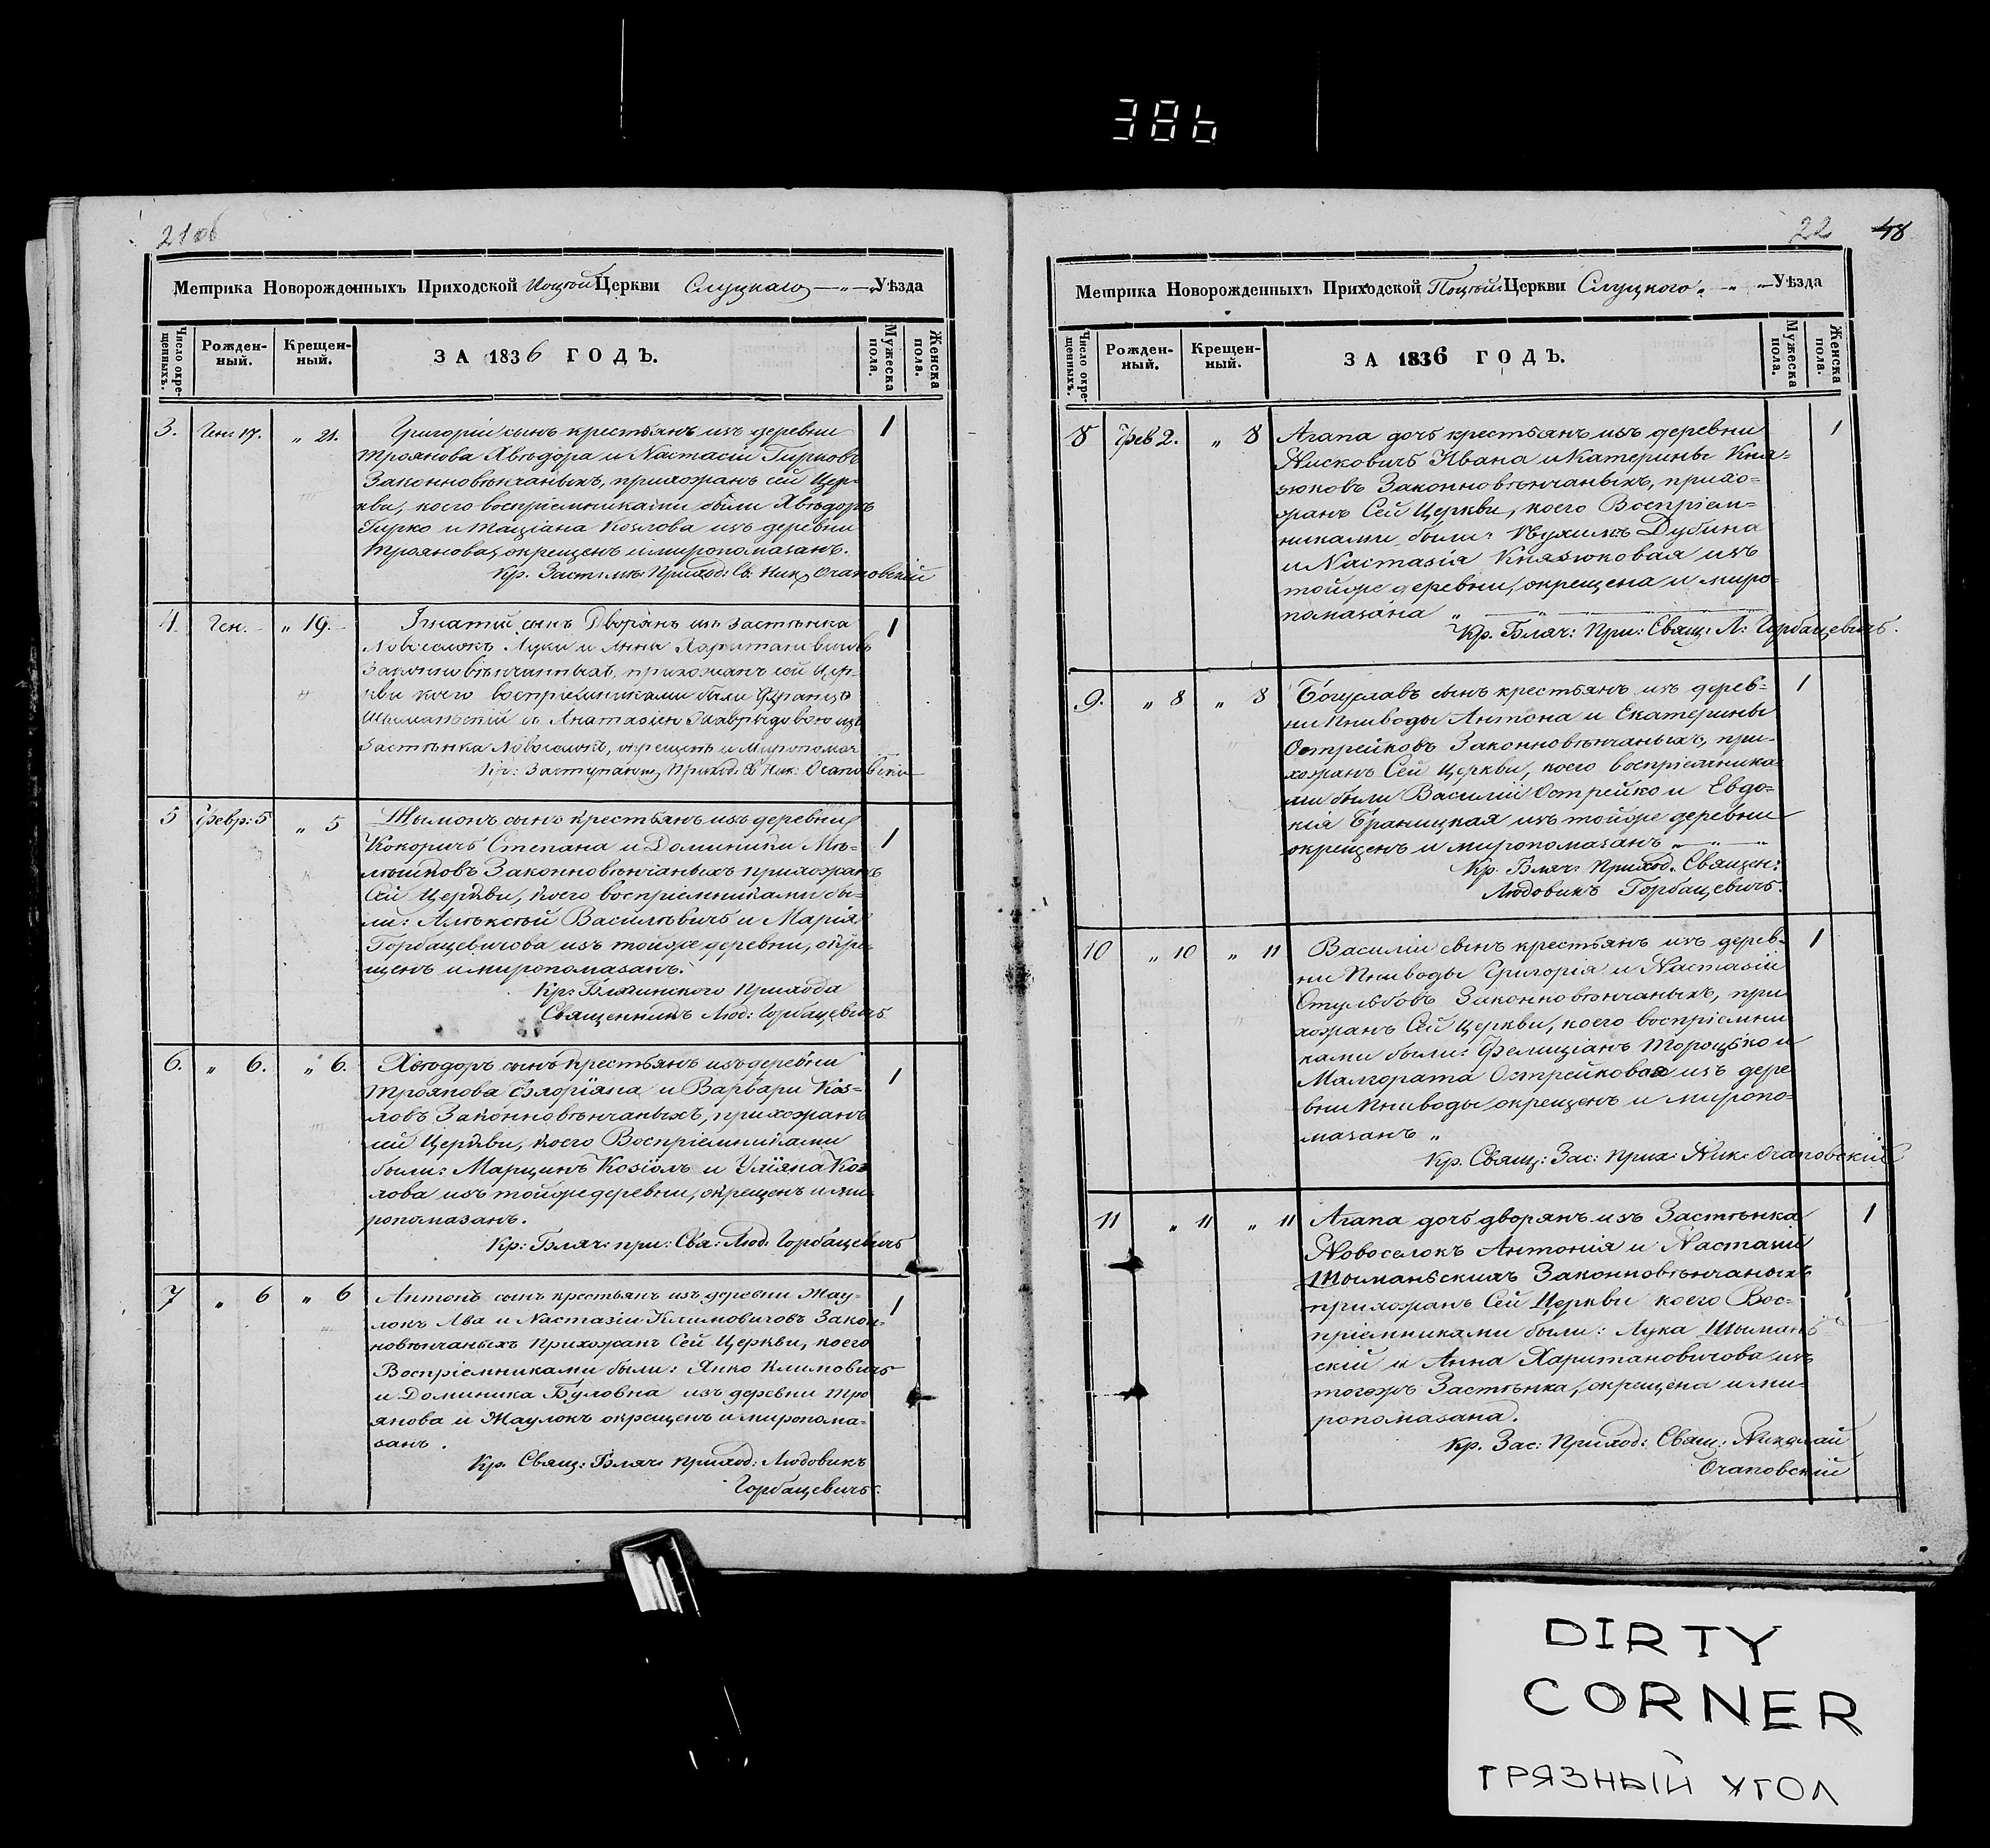 386
21об
Метрика Новорожденныхъ Приходской Церкви Слуцкаго Уѣзда
Число окре-
щенныхъ.
Рожден-
ный.
Крещен-
ный.
ЗА 1836 ГОДЪ.
Мужеска
пола.
Женска
пола.
3. Ген: 17. „ 21. Григорій сынъ крестьянъ изъ деревни 1
Троянова Хвѣдора и Настасіи Гирковъ
Законновѣнчаныхъ, прихожанъ сей Цер-
кви, коего воспріемниками были Хвѣдоръ
Гирко и Таціана Козлова изъ деревни
Троянова, окрещенъ и миропомазанъ.
Кр. Заст: Приход: Св: Ник: Очаповскій
4 Ген. „ 19. Ігнатій сынъ Дворянъ изъ застѣнка 1
Новоселокъ Луки и Анны Харитановичовъ
Законновѣнчанныхъ, прихожанъ сей Цер-
кви коего воспріемниками были Францъ
Шыманьскій и Анастазія из
Застѣнка Новоселокъ, окрещенъ и Миропомаз
Кр: Заступающ: Приход: Св Ник: Очаповскій
5 Февр: 5 „ 5 Шымонъ сынъ крестьянъ изъ деревни 1
Кокоричъ Степана и Доминики Мѣ-
лѣшковъ Законновѣнчаныхъ прихожанъ
Сей Церкви, коего воспріемниками бы-
ли: Алѣксѣй Василѣвичъ и Марія
Горбацевичова изъ тойже деревни, окре-
щенъ и миропомазанъ.
Кр: Блячинского Прихода
Священникъ Люд: Горбацевичъ
6. „ 6. „ 6. Хвѣдоръ сынъ крестьянъ изъ деревни 1
Троянова Флоріяна и Варвары Коз-
ловъ Законновѣнчаныхъ, прихожанъ
сей Церкви, коего Воспріемниками
были: Марцинъ Козіолъ и Уліяна Коз
лова изъ тойже деревни, окрещенъ и ми-
ропомазанъ.
Кр: Бляч: при: Свя: Люд: Горбацевичъ
7 „ 6 „ 6 Антонъ сынъ крестьянъ изъ деревни Жау- 1
локъ Лва и Настазіи Климовичовъ Закон-
новѣнчаныхъ Прихожанъ Сей Церкви, коего
Воспріемниками были: Янко Климовичъ
и Доминика Буловна изъ деревни Тро
янова и Жаулокъ окрещенъ и миропома-
занъ.
Кр. Свящ: Бляч: приход: Людовикъ
Горбацевичъ.
22 48
Метрика Новорожденныхъ Приходской Церкви Слуцкого „ „ Уѣзда
Число окре-
щенныхъ.
Рожден-
ный.
Крещен-
ный.
ЗА 1836 ГОДЪ.
Мужеска
пола.
Женска
пола.
8 Фев 2. „ 8 Агапа дочь крестьянъ изъ деревни 1
Нисковичъ Ивана и Катерины Кня-
зюковъ Законновѣнчаныхъ, прихо-
жанъ Сей Церкви, коего Воспріем-
никами были: Якимъ Дубина
и Настазія Князюковая изъ
тойже деревни, окрещена и миро-
помазана „ „
Кр. Бляч: При: Свящ: Л: Горбацевичъ.
9. „ 8 „ 8 Богуславъ сынъ крестьянъ изъ дерев- 1
ни Пниводы Антона и Екатерины
Острейковъ Законновѣнчаныхъ, при-
хожанъ Сей Церкви, коего воспріемника-
ми были Василій Острейко и Евдо-
кія Браницкая изъ тойже деревни
окрещенъ и миропомазанъ „ „
Кр. Бляч: Приход: Священ:
Людовикъ Горбацевичъ.
10 „ 10 „ 11 Василій сынъ крестьянъ изъ дерев- 1
ни Пниводы Григорія и Настазіи
Стульбовъ Законновѣнчаныхъ, при
хожанъ Сей Церкви, коего воспріемни
ками были: Фелиціанъ Тороцько и
Малгората Острейковая изъ дере
вни Пниводы окрещенъ и миропо-
мазанъ „
Кр. Свящ: Зас: Прих: Ник: Очаповскій
11 „ 11 „ 11 Агапа дочь дворянъ изъ Застѣнка 1
Новоселокъ Антонія и Настазіи
Шыманьскихъ Законновѣнчаныхъ
прихожанъ Сей Церкви коего Вос-
пріемниками были: Лука Шымань-
скій и Анна Харитановичова изъ
тогожъ Застѣнка, окрещена и ми-
ропомазана.
Кр. Зас: Приход: Свящ: Николай
Очаповскій
DIRTY
CORNER
ГРЯЗНЫЙ УГОЛ